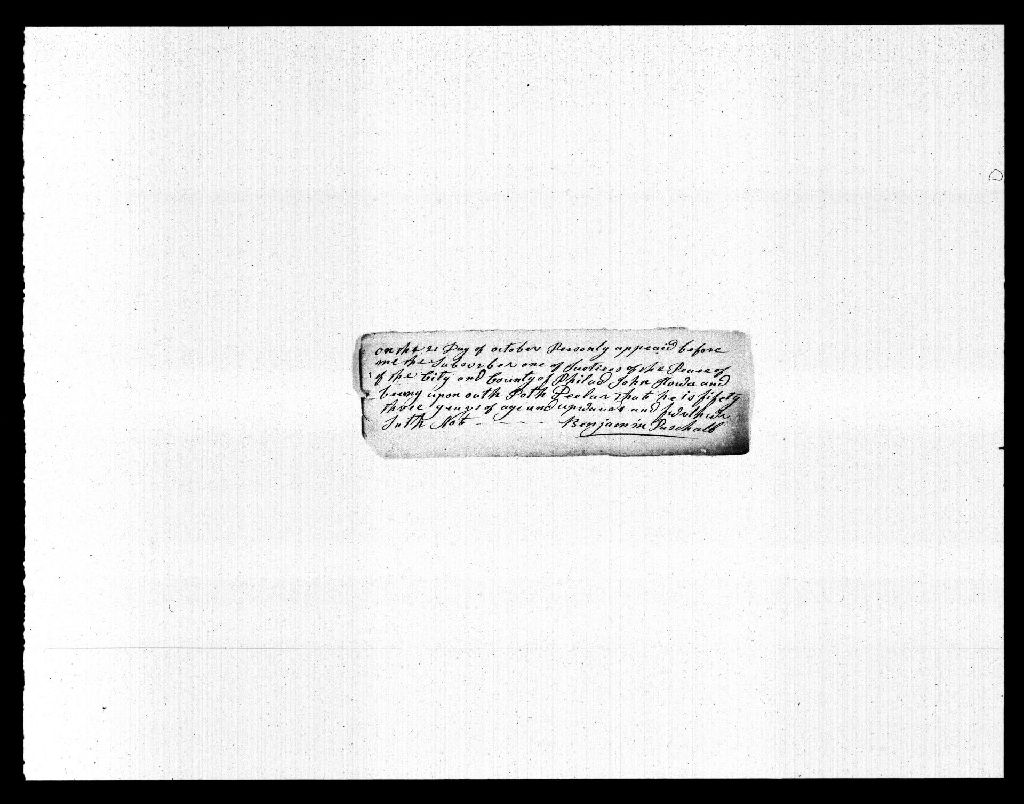 on the 21 Day of october Personly appeaed before
me the Subscriber one of Justices of the Peace of
of the City and County of Philad John and
being upon oath Doth Declar that he is fifety
three years of age and upwards and further
Saith Not - - - - - Benjamin Paschall